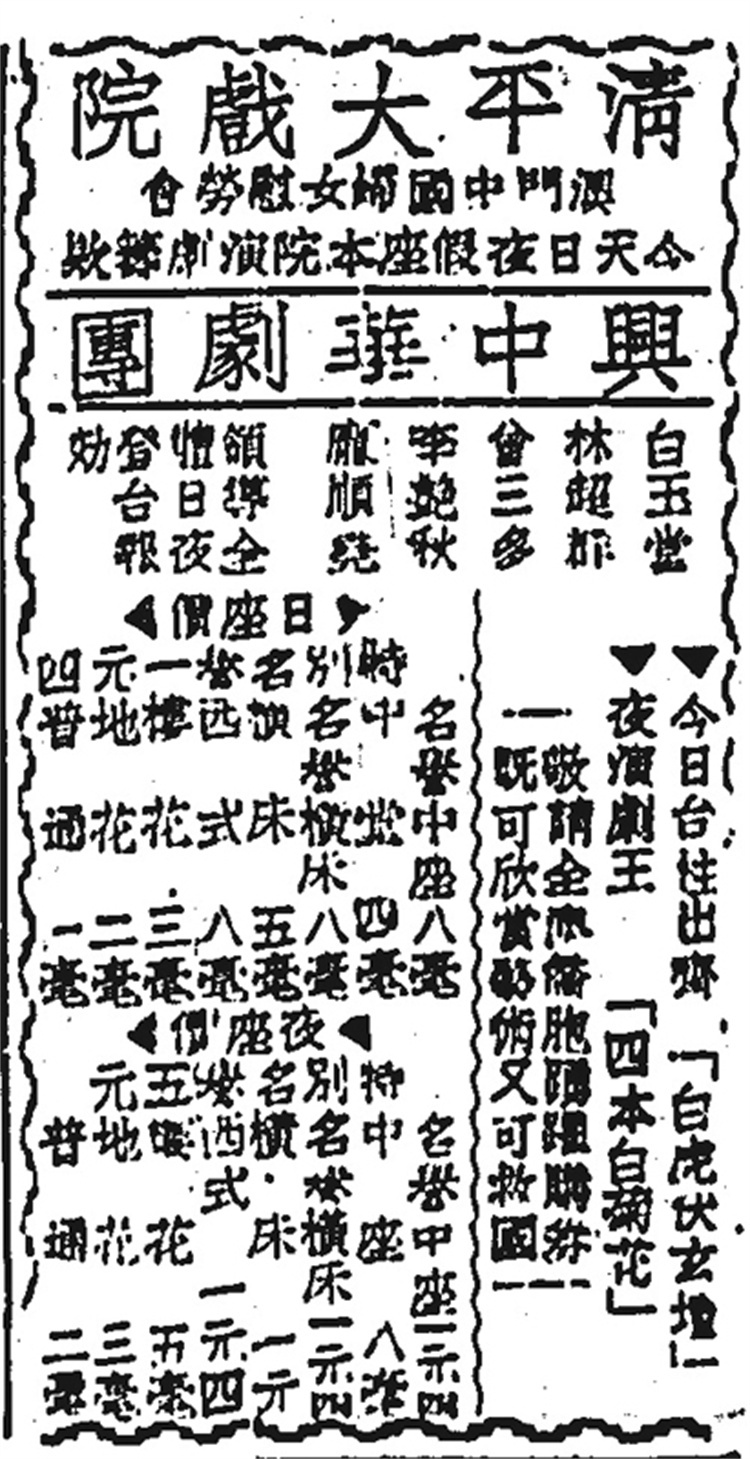 清平大戲院
澳門中國婦女慰勞會
今天日夜假座本院演劇籌款
興中華劇團
白玉堂
林超群
曾三多
李艶秋
龐順堯
領導全
體日夜
登台報
効
▼今日台柱出齊「白虎伏玄壇」
▼夜演劇王「四本白菊花」
敬請全澳僑胞踴躍購券
既可欣賞藝術又可救國
日座價
名譽中座八毫
特別名譽橫床八毫
中堂四毫
名譽西式八毫
橫床五毫
一樓花三毫
元地花二毫
普通一毫
夜座價
名譽中座一元四
特別名譽橫床一元四
中座八毫
名譽西式一元四
橫床一元
五毫
元地花三毫
普通二毫